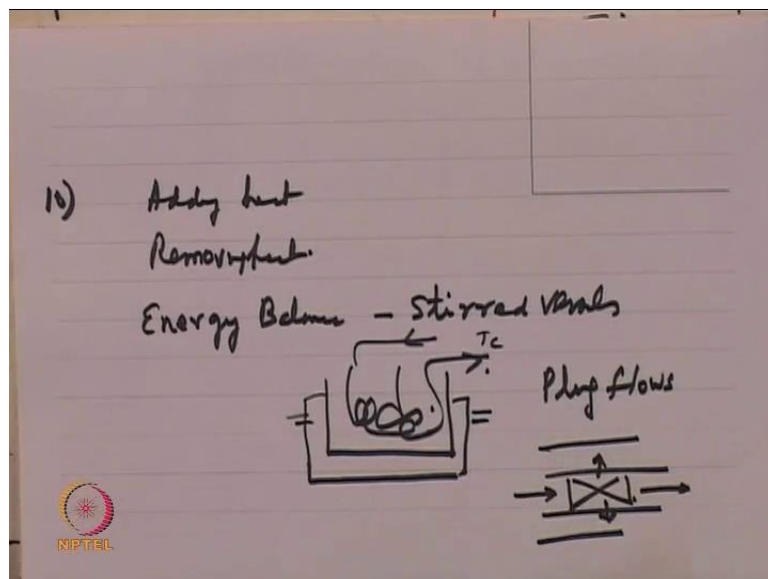 10) Adding heat
Removing heat.
Energy Balance - Stirred vessels
Tc
Plug flows
NPTEL